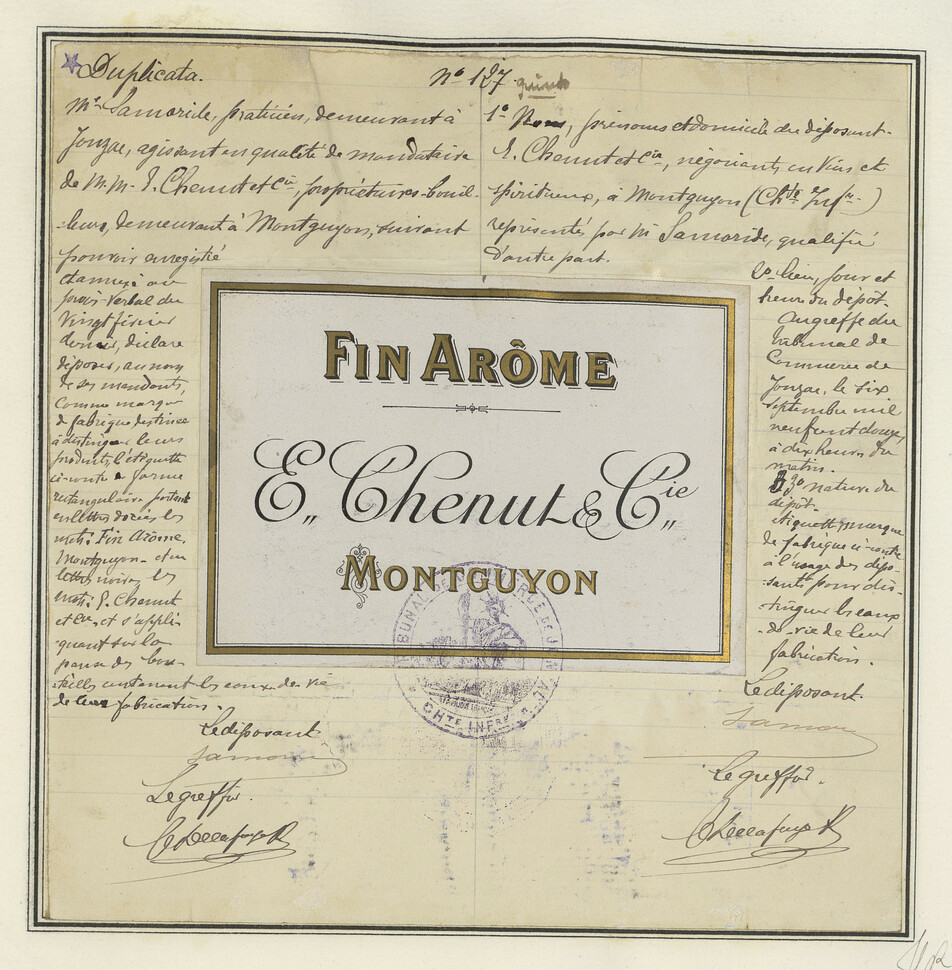 Duplicata.
Mr Samoride, praticien, demeurant à
Jonzac, agissant en qualité de mandataire
de M.M. E. Chenut et Cie, propriétaires-bouil-
-leurs, demeurant à Montguyon, suivant
pouvoir enregistré
et annexé au
procès-verbal du
vingt février
dernier, déclare
déposer, au nom
de ses mandants,
comme marque
de fabrique destinée
à distinguer leurs
produits, l'étiquette
ci-contre de forme
rectangulaire, portant
en lettres dorées les
mots: Fin Arôme,
Montguyon, et en
lettres noires, les
mots: E. Chenut
et Cie, et s'appli-
quant sur la
panse des bou-
-teilles contenant les eaux-de-vie
de leur fabrication.
Le déposant
Le greffier.
No 127
1o Nom, prénoms et domicile du déposant.
E. Chenut et Cie, négociants en vins et
spiritueux, à Montguyon (Chte Infre)
représentés par Mr Samoride, qualifié
d'autre part.
2o lieu, jour et
heure du dépôt.
Au greffe du
tribunal de
Commerce de
Jonzac, le six
septembre mil
neuf cent douze,
à dix heures du
matin.
3o nature du
dépôt.
étiquette, marque
de fabrique ci-contre
à l'usage des dépo-
-sants pour dis-
-tinguer les eaux-
-de-vie de leur
fabrication.
Le déposant
Le greffier.
FIN ARÔME
E. Chenut & Cie
MONTGUYON
CHTE INFRE